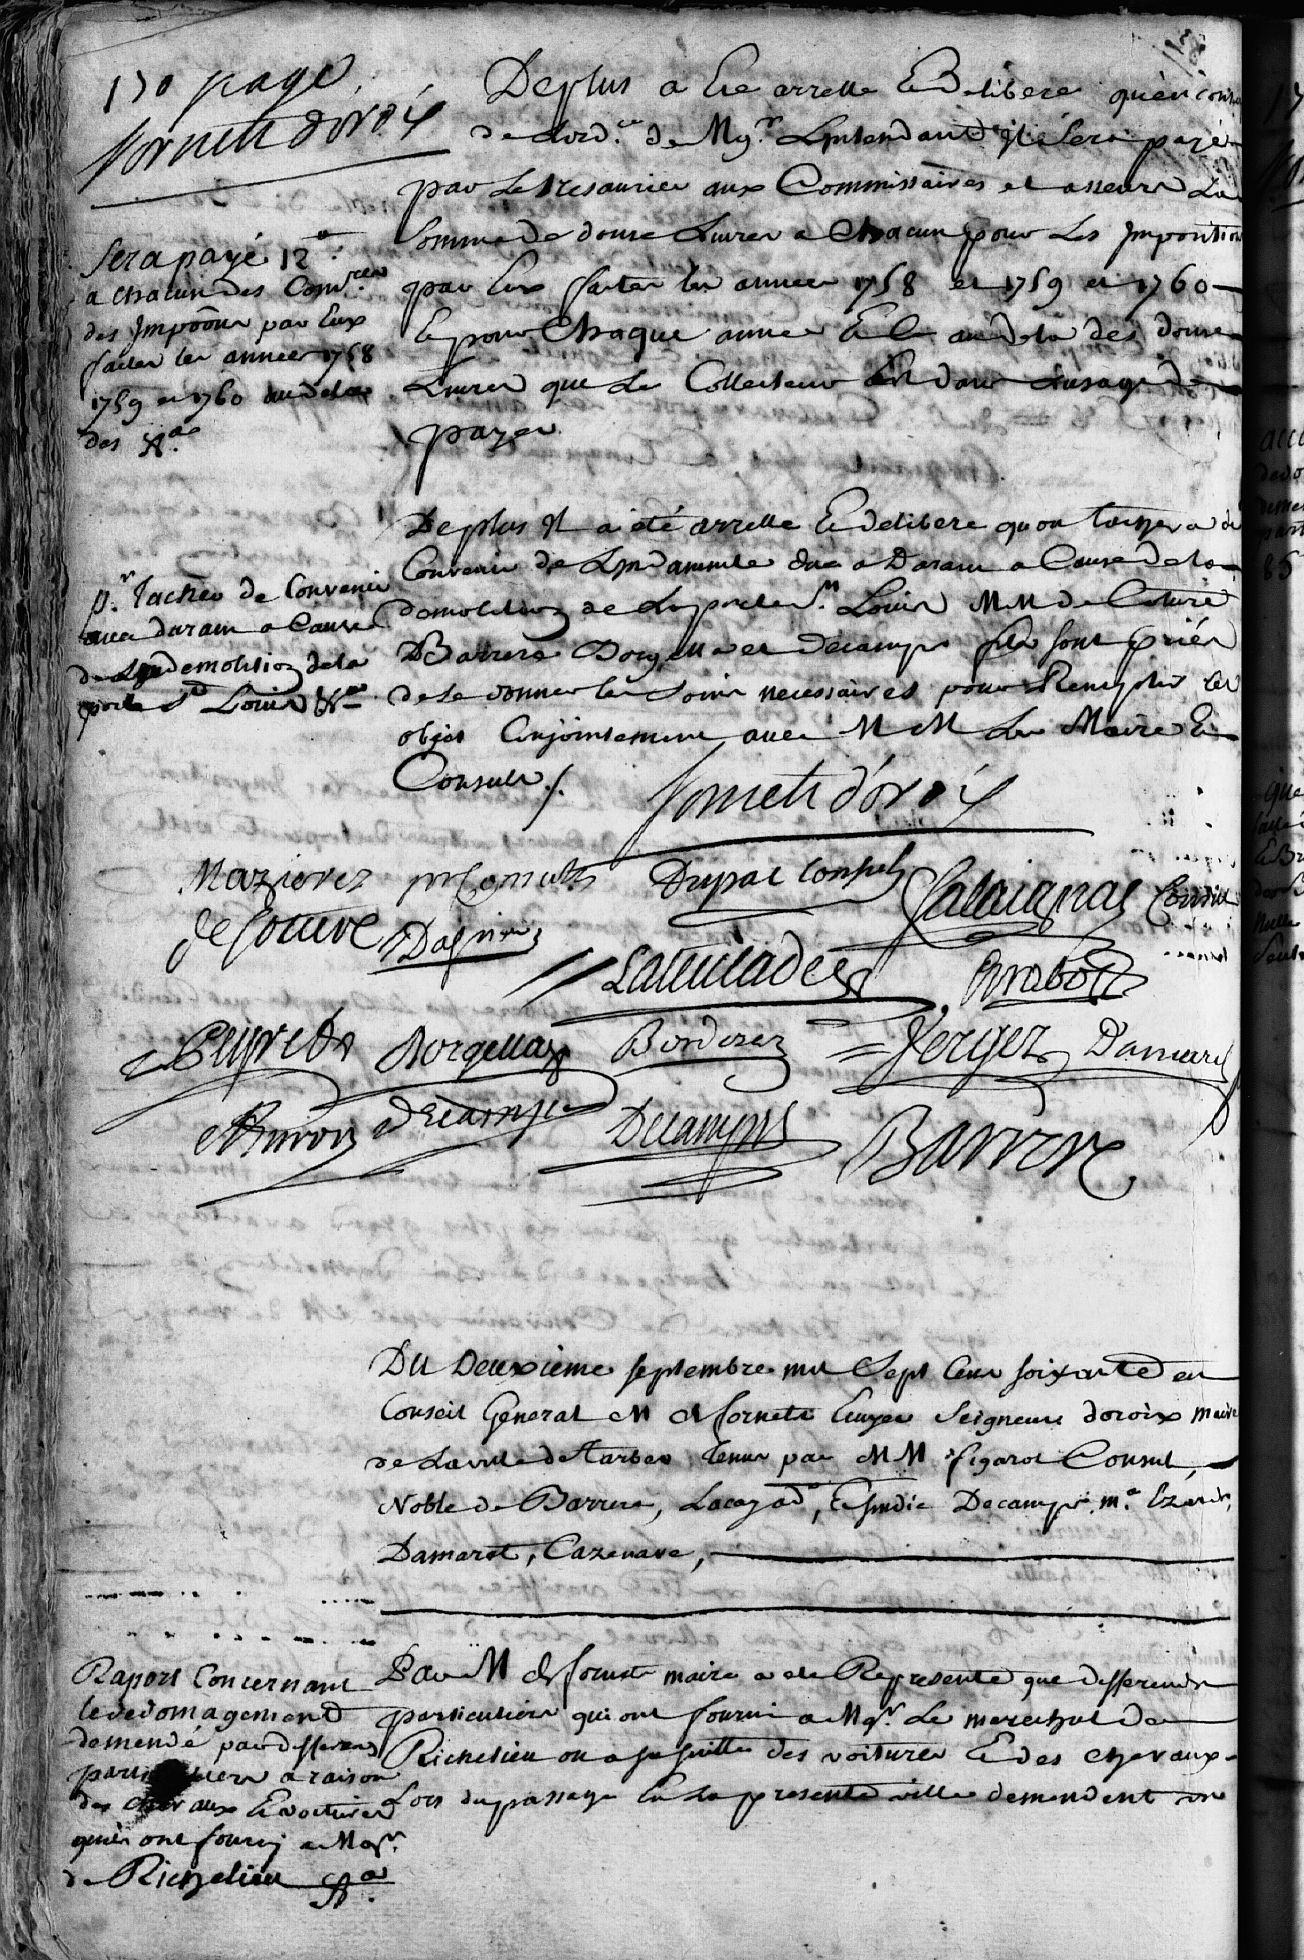 130 page
fornets doroix
De plus a Ete arrette Et Delibere qu'en
de Lord.ce de Mgr. Lintendant il sera payé
par Le tresaurier aux Commissaires et asseurs La
Somme de douse Livres a Chacun pour Les Imposition
par Eux faites les années 1758 et 1759 et 1760
Et pour Chaque année Et au dela des douse
Livres que Le Collecteur Est dans Lusage de
payer
Sera payé 12
a chacun des Comres
des Impoons par Eux
faites les années 1758
1759 et 1760 au dela
des &a.
De plus Il a été arrette Et delibere qu'on tachera de
Convenir de Lindamnité due a Daram a Cause de la
demolition de La porte St. Louis MM de Couture
Barrere Dorgella et Decamps fils sont priés
de se donner les soins necessaires pour Remplir cet
objet Conjointement avec MM Les Maire Et
Consuls ./.
pr. Tacher de Convenir
avec daram a Cause
de la demolition de la
porte St Louis &a
fornets d'oroix
Mazieres pr Consul Dupac Consul Salaignac Consul
de Couture Dasnieres
Lateulade Brabo
Peyrede Dorgella Borderes Verges Damerel
Duron Decamps Decamps Barrere
Du Deuxieme septembre mil Sept Cens soixante en
Conseil General M de fornets Ecuyer Seigneur doroix maire
de La ville de Tarbes, tenu par MM figarol Consul,
Noble de Barrere, Lacay ad.t, Et sindic Decamps m.e
Damarot, Cazenave,
Raport Concernant
le dedomagement
demendé par differens
particuliers a raison
des chevaux Et voitures
quils ont fourni a Mgr.
de Richelieu &a.
Par M de fornets maire a ete Represente que differends
particuliers qui ont fourni a Mgr. Le marechal de
Richelieu ou a sa suitte des voitures Et des chevaux
Lors du passage En La presente ville demendent un